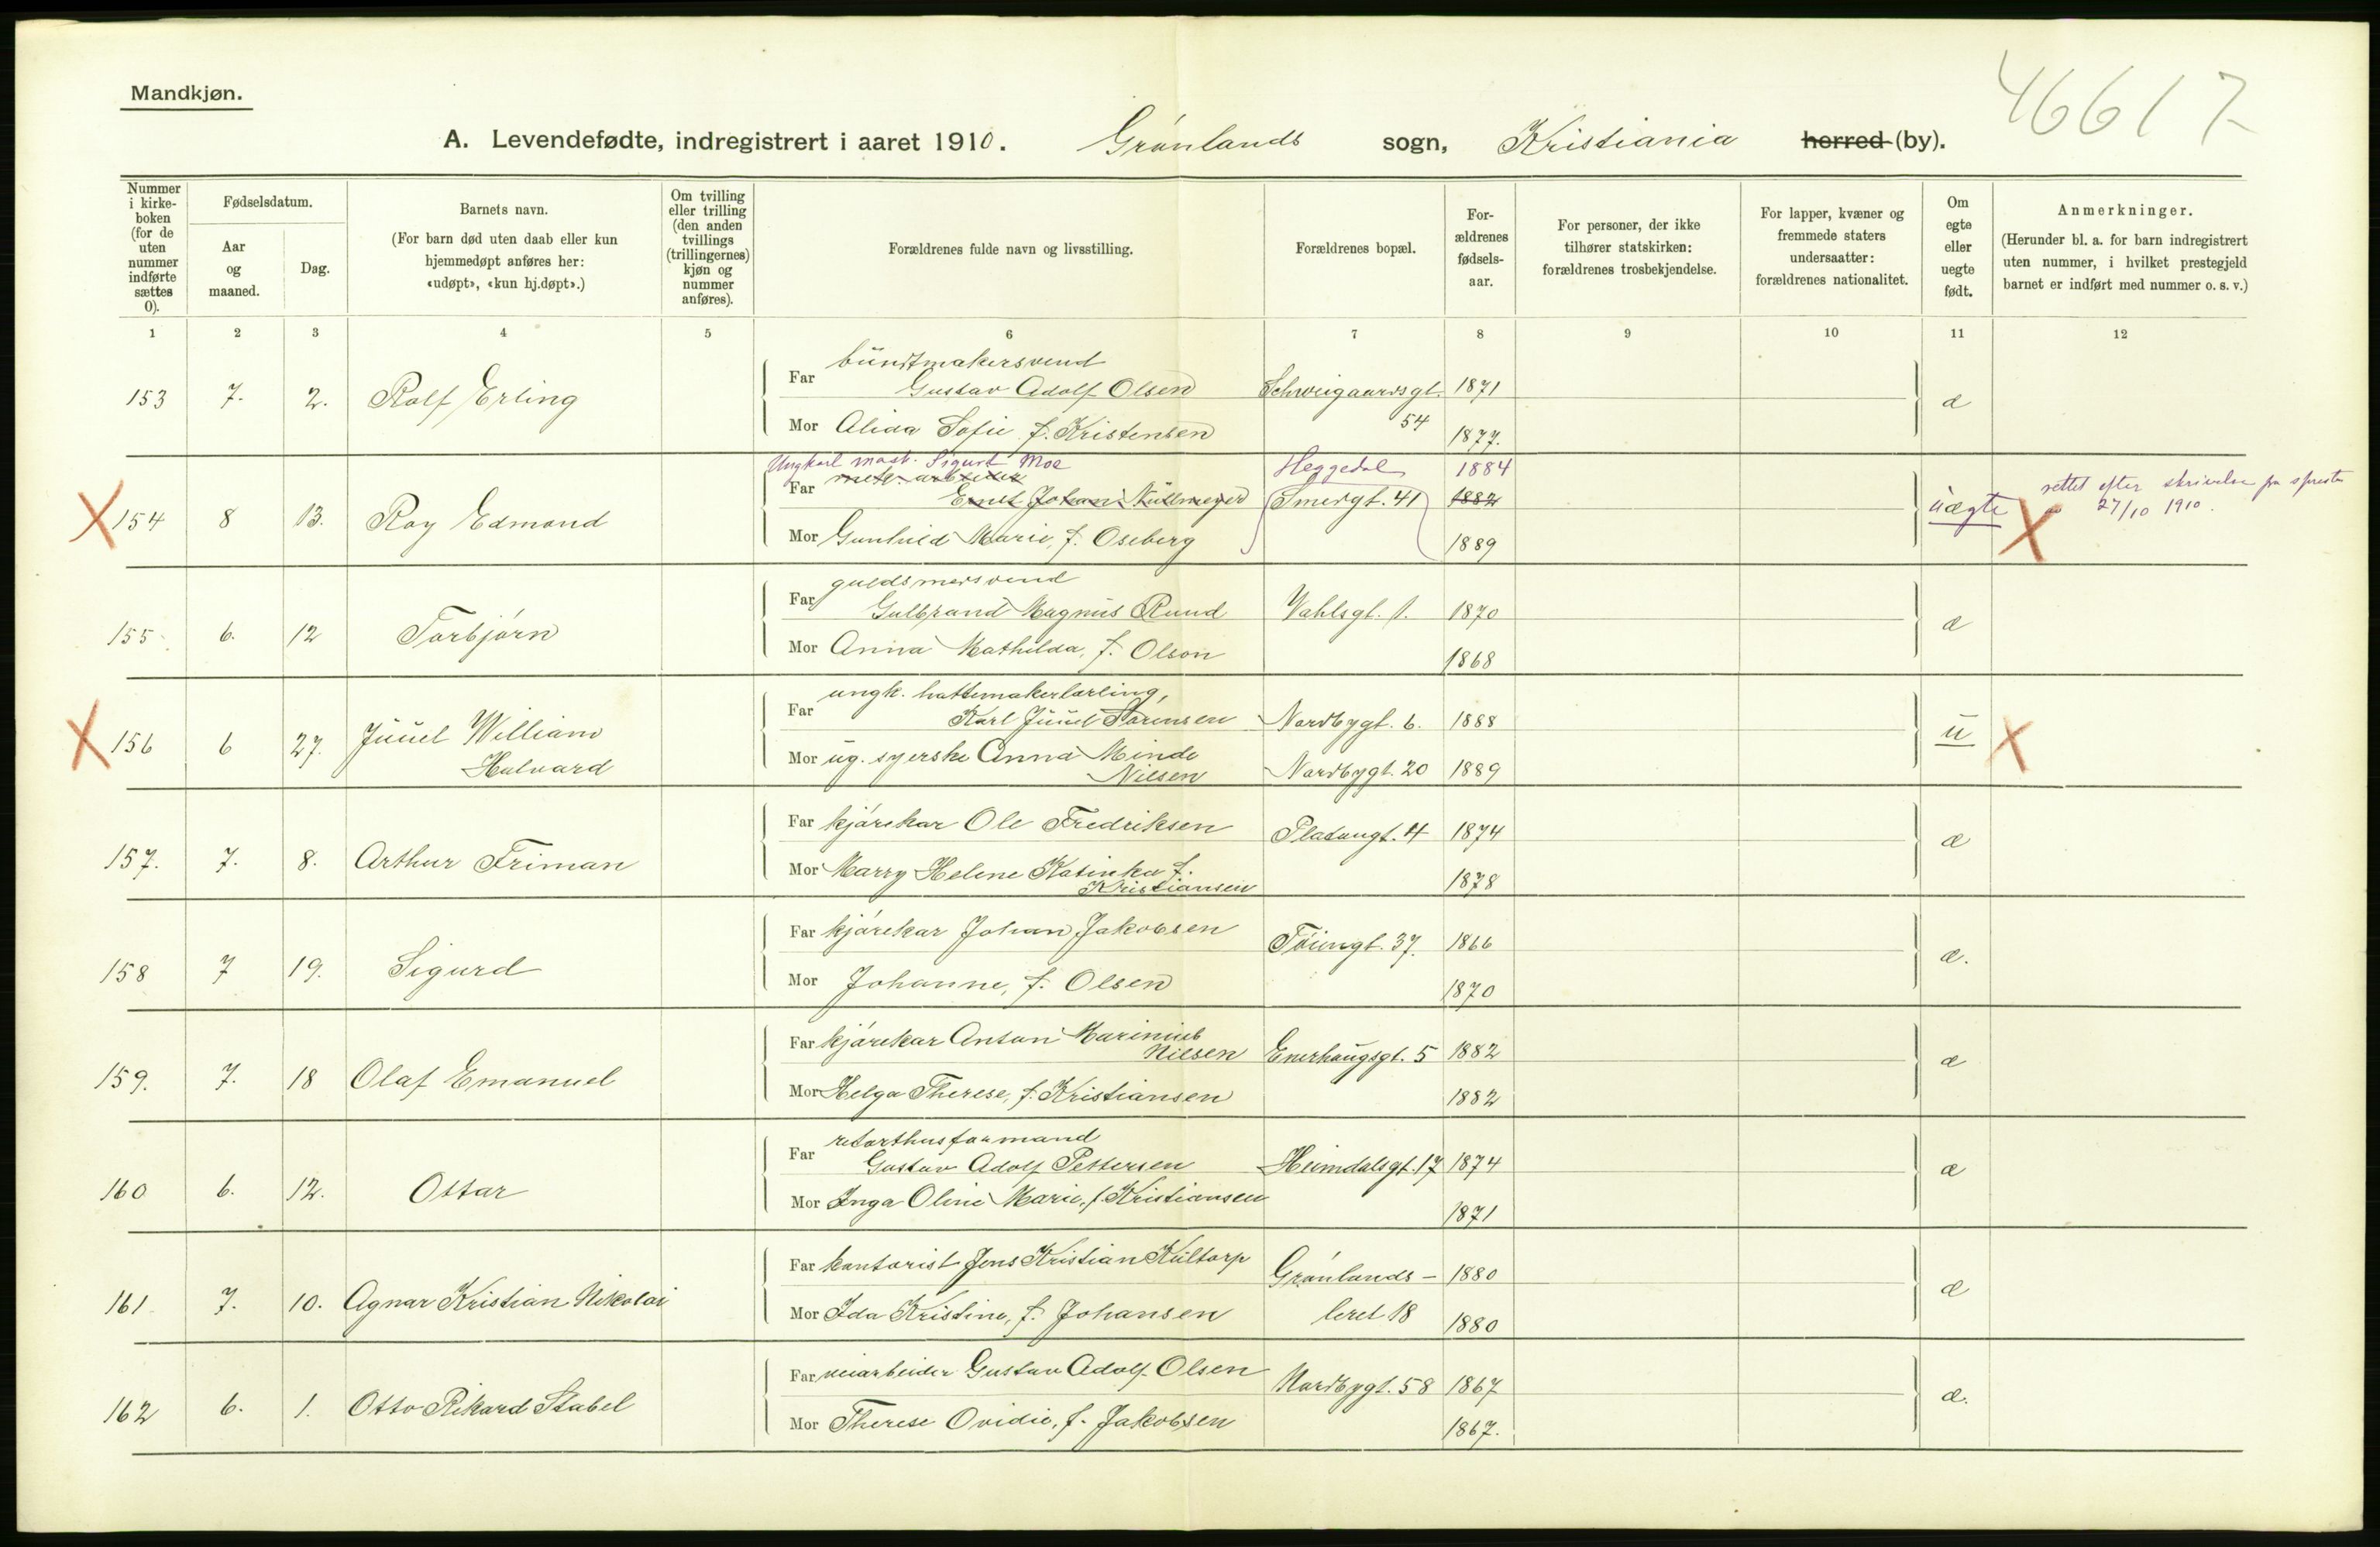 46617
Mandkjøn.
A. Levendefødte, indregistrert i aaret 1910. Grønlands sogn, Kristiania herred (by).
Nummer i kirke-boken (for de uten nummer indførte sættes 0).
Fødselsdatum.
Aar og maaned.
Dag.
Barnets navn.
(For barn død uten daab eller kun hjemmedøpt anføres her: «udøpt», «kun hj.døpt».)
Om tvilling eller trilling (den anden tvillings (trillingernes) kjøn og nummer anføres).
Forældrenes fulde navn og livsstilling.
Forældrenes bopæl.
For-ældrenes fødsels-aar.
For personer, der ikke tilhører statskirken: forældrenes trosbekjendelse.
For lapper, kvæner og fremmede staters undersaatter: forældrenes nationalitet.
Om egte eller uegte født.
Anmerkninger.
(Herunder bl. a. for barn indregistrert uten nummer, i hvilket prestegjeld barnet er indført med nummer o. s. v.)
1 2 3 4 5 6 7 8 9 10 11 12
bundtmakersvend
153 7. 2. Rolf Erling Far Gustav Adolf Olsen Schweigaardsgt. 1871 æ
Mor Alida Sofie f. Kristensen 54 1877.
Ungkarl mask. Sigurt Moe Heggedal 1884
X 154 8 13. Roy Edmond Far Ernst Johan Smedgt. 41 1882 uægte X rettet efter skrivelse fra 27/10 1910.
Mor Gunhild Marie, f. Oseberg 1889
guldsmedsvend
155 6. 12 Torbjørn Far Gulbrand Magnus Ruud Vahlsgt. 1. 1870 æ
Mor Anna Mathilda, f. Olson 1868
ungk. hattemakerlærling,
X 156 6 27. Juuel William Halvard Far Karl Juuel Sørensen Nordbygt. 6. 1888 u X
Mor ug. syerske Anna Minde Nilsen Nordbygt. 20 1889
157. 7. 8. Arthur Friman Far kjørekar Ole Fredriksen Platougt. 4 1874 æ
Mor Marry Helene Katinka f. Kristiansen 1878
158 7 19. Sigurd Far kjørekar Johan Jakobsen Tøiengt. 37. 1866 æ.
Mor Johanne, f. Olsen 1870
159. 7. 18 Olaf Emanuel Far kjørekar Anton Marinius Nilsen Enerhaugsgt. 5 1882 æ
Mor Helga Therese, f. Kristiansen 1882
retorthusformand
160 6. 12. Ottar Far Gustav Adolf Pettersen Heimdalsgt. 17 1874 æ
Mor Inga Oline Marie, f. Kristiansen 1871
161 7. 10. Agnar Kristian Nikolai Far kontorist Jens Kristian Kultorp Grønlands- 1880 æ
Mor Ida Kristine, f. Johansen leret 18 1880
162 6. 1. Otto Rikard Stabel Far veiarbeider Gustav Adolf Olsen Nordbygt. 58 1867 æ.
Mor Therese Ovidie, f. Jakobsen 1867.